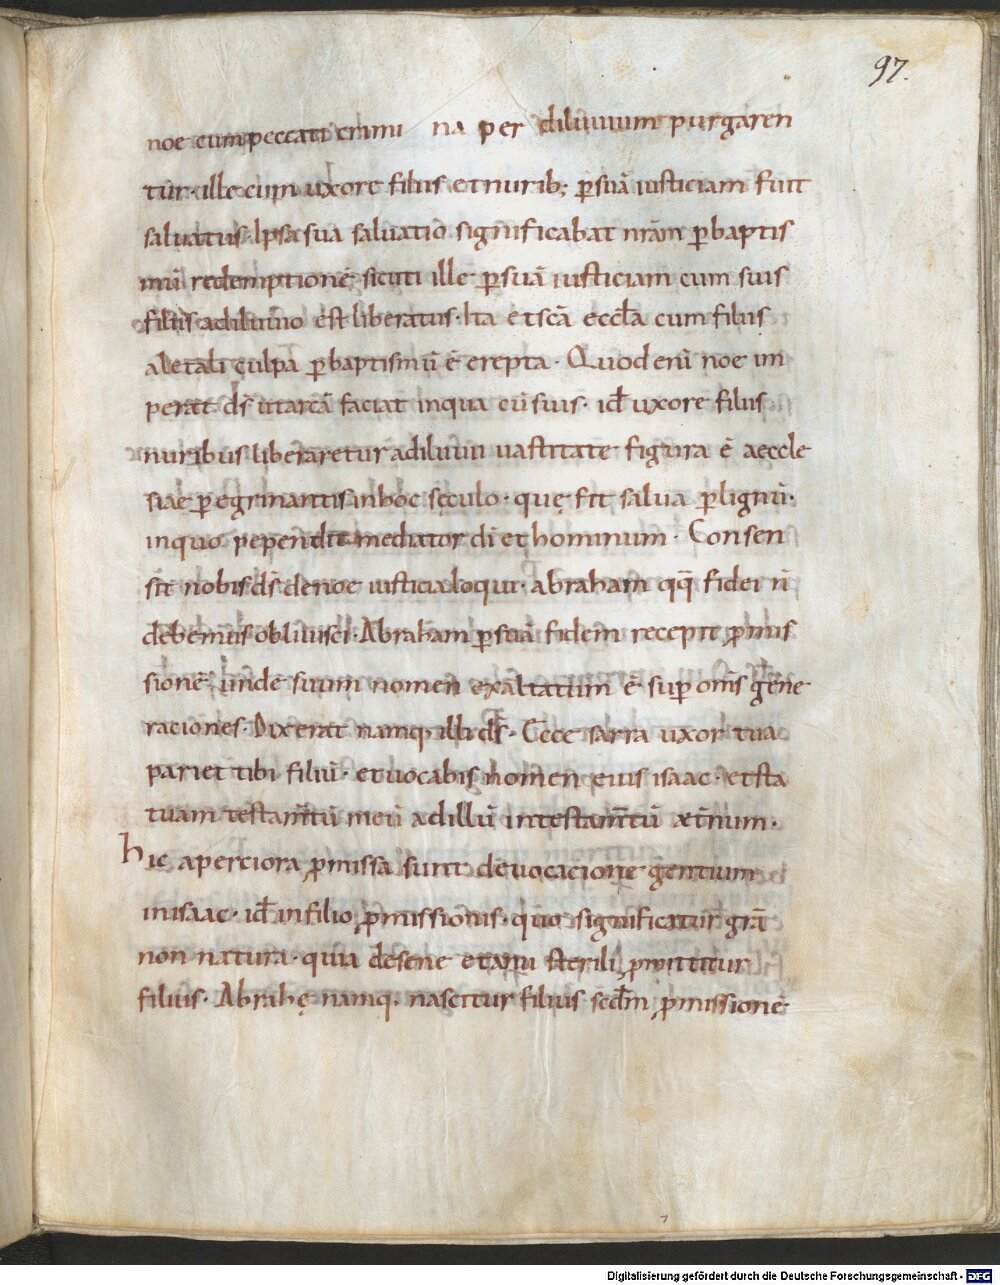 97.
noe cum peccati crimi na per diluuium purgaren
tur· ille cum uxore filiis et nurib; p̄ suā iusticiam fuit
saluatus· Ipsa sua saluatio significabat nr̄am p̄ baptis
mū redemptionē sicuti ille p̄ suā iusticiam cum suis
filiis a diluuio est liberatus· Ita et sc̄a eccl̄a cum filiis
a letali culpa p̄ baptismū ē erepta· Quod enī noe im
perat d̄s ut arcā faciat in qua cū suis· id̄ uxore filiis
nuribus liberaretur a diluuii uastitate figura ē aeccle
siae p̄egrinantis in hoc sęculo· quę fit salua p̄ lignū·
in quo pependit mediator dī et hominum· Consen
sit nobis d̄s de noe iusticia loqui· abraham qq̄ fidei n̄
debemus obliuisci· Abraham p̄ suā fidem recepit p̄mis
sionē unde suum nomen exaltatum ē sup̄ om̄s gene
raciones· Dixerat namq· illi d̄s· Ecce sarra uxor tua
pariet tibi filiū· et uocabis nomen eius isaac· et sta
tuam testam̄tū meū ad illū in testam̄tū æt̄num·
hic aperciora p̄missa sunt de uocacione gentium
in isaac· id̄ in filio p̄missionis· quo significatur gr̄a
non natura· quia de sene et anu sterili p̄mittitur
filius· Abrahę namq· nascitur filius secd̄m p̄missionē
Digitalisierung gefördert durch die Deutsche Forschungsgemeinschaft - DFG